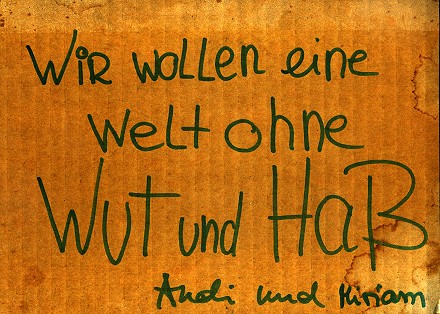 Wir wollen eine
Welt ohne
Wut und Haß
Andi und Miriam